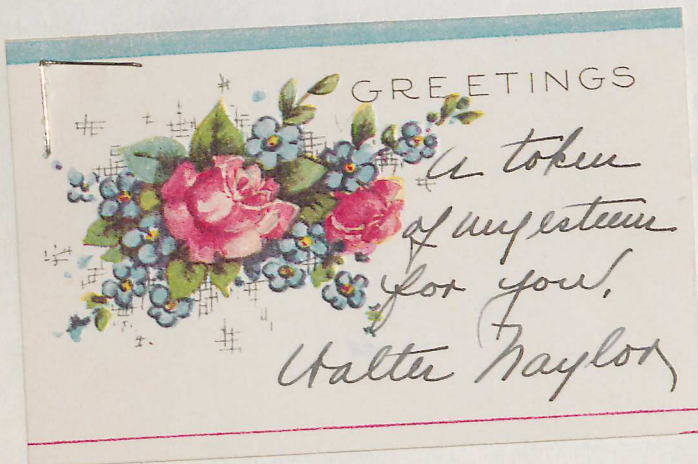 GREETINGS
A token
of my esteem
for you.
Walter Naylor